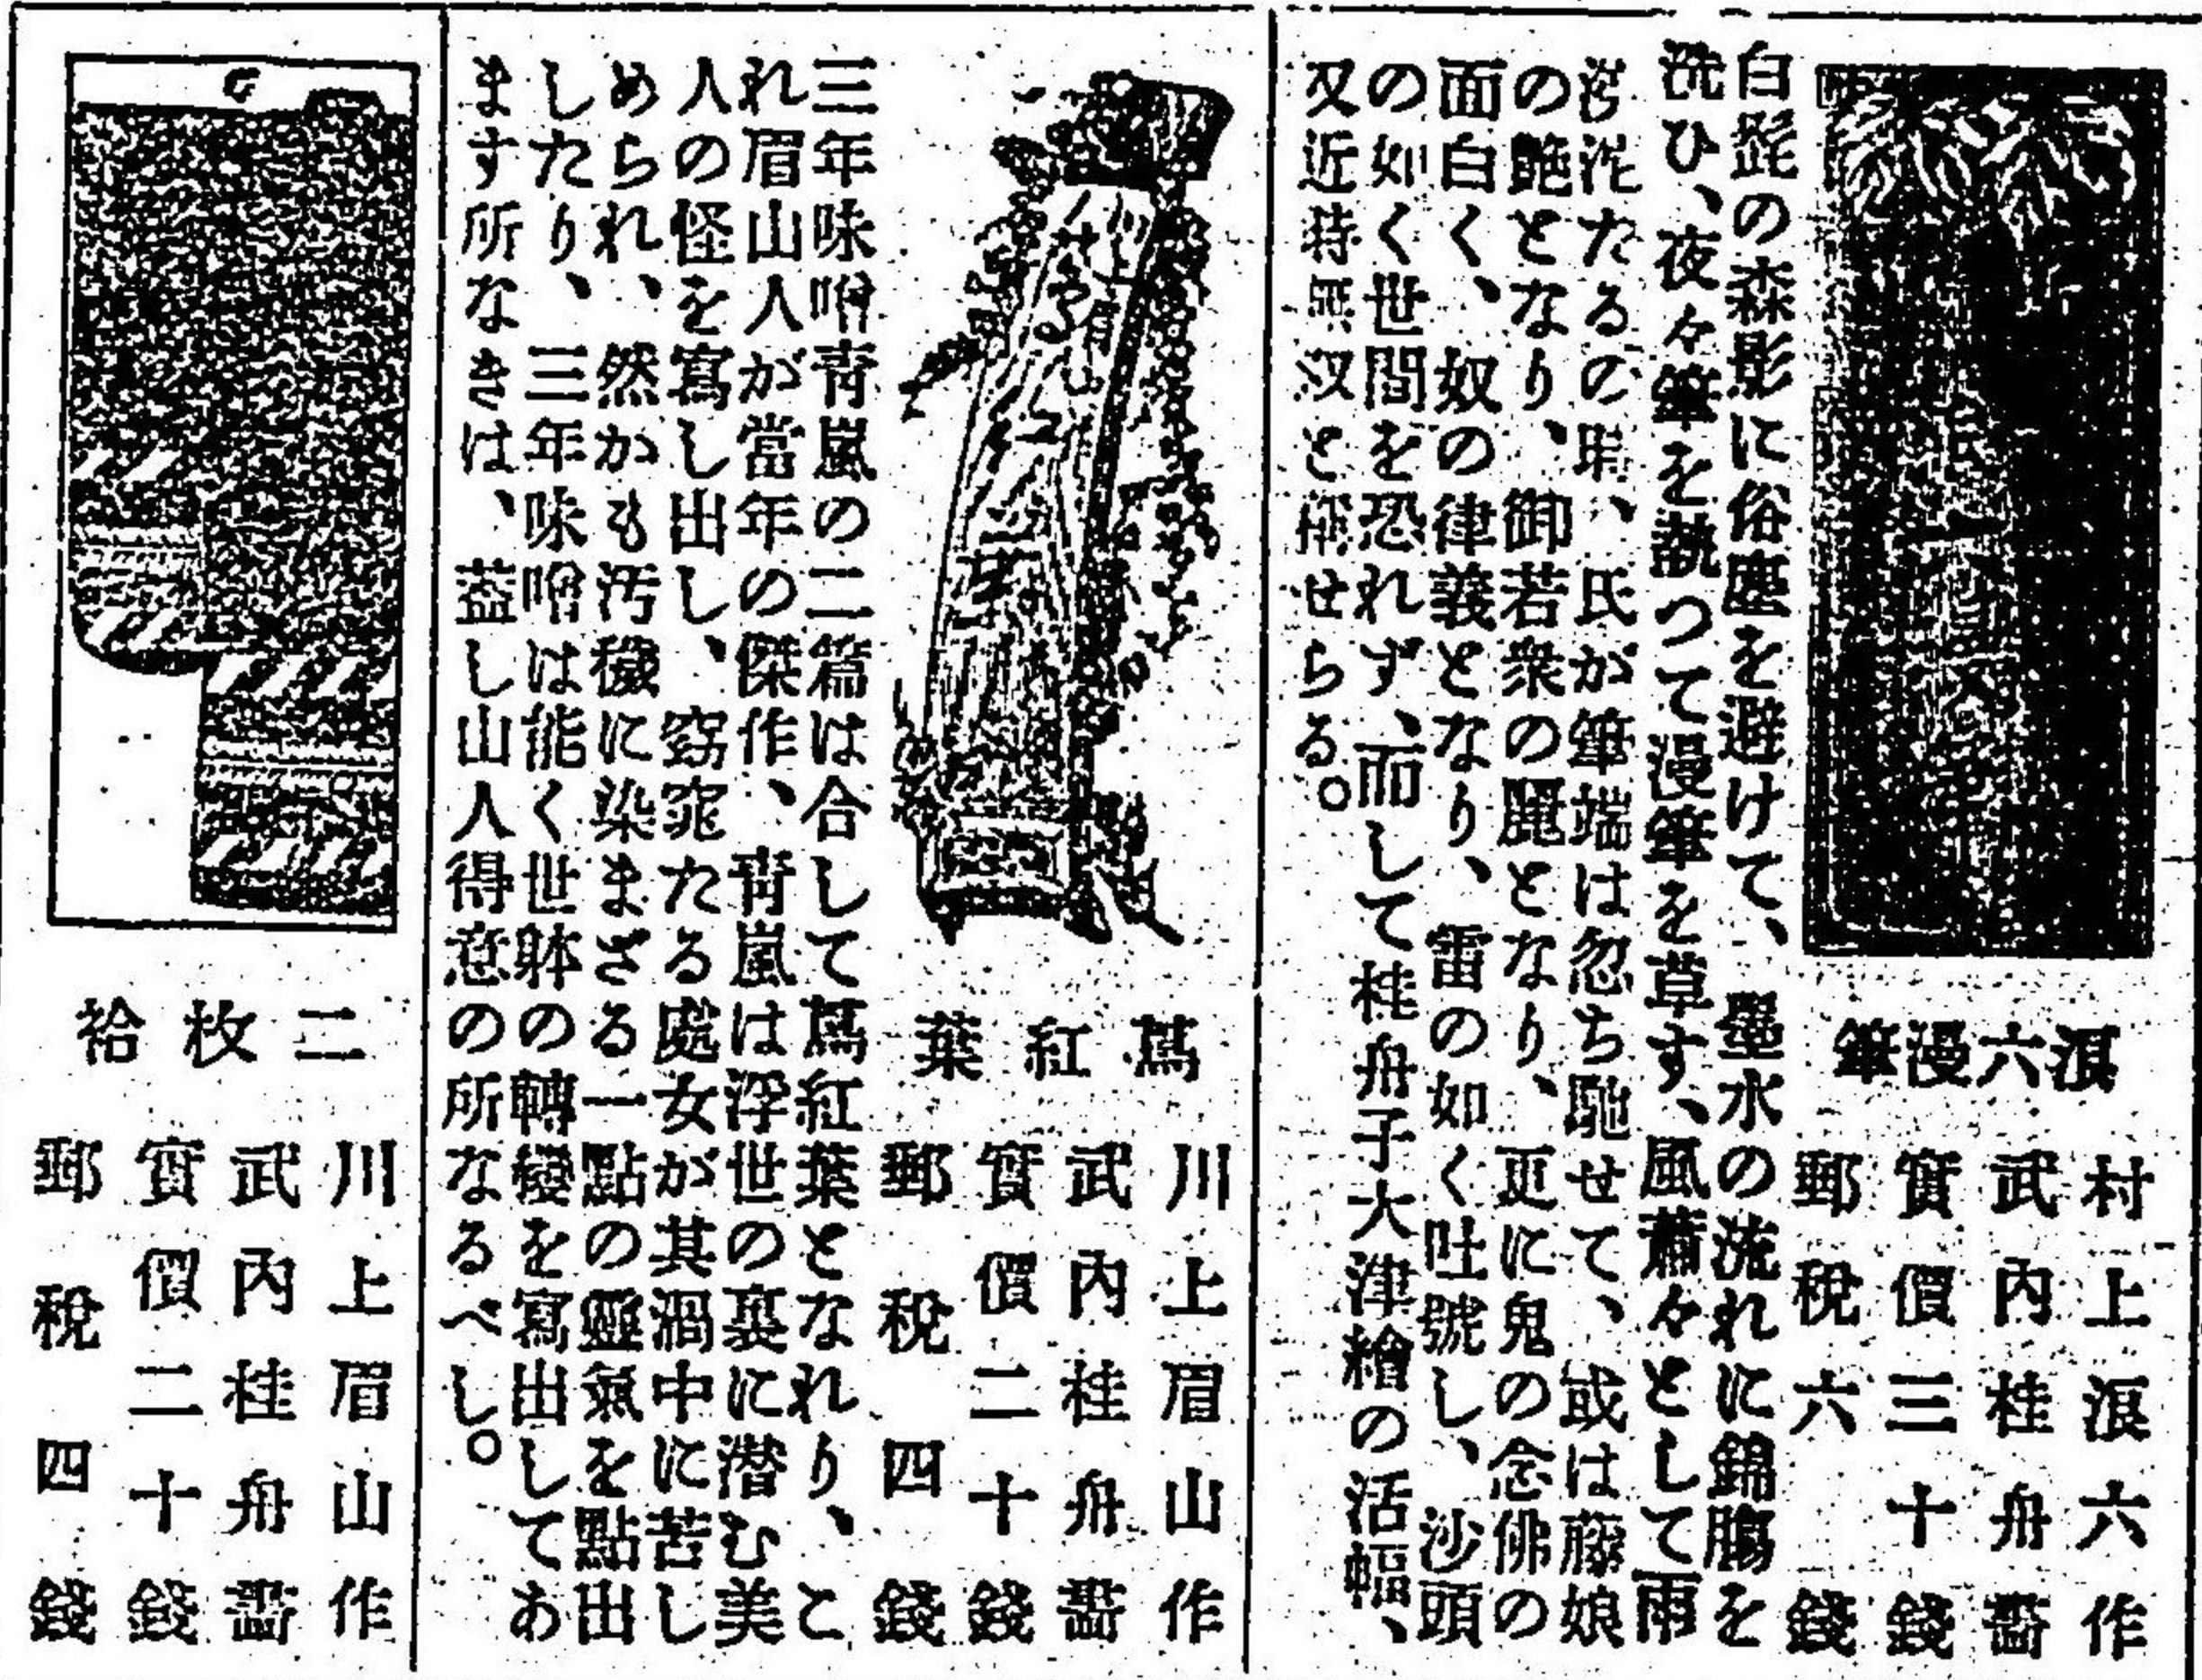 浪六漫筆
村上浪六作
武內桂舟畵
實價三十錢
郵稅六錢
白髭の森影に俗塵を避けて、墨水の流れに錦膓を
洗ひ、夜々筆を執つて漫筆を草す、風蕭々として雨
滂沱たるの時、氏が筆端は忽ち馳せて、或は藤娘
の艶となり、御若衆の麗となり、更に鬼の念佛の
面白く、奴の律義となり、雷の如く吐號し、沙頭
の如く世間を恐れず、而して桂舟子大津繪の活幅、
又近時無双と稱せらる。
蔦紅葉
川上眉山作
武內桂舟畵
實價二十錢
郵稅四錢
三年味噌青嵐の二篇は合して蔦紅葉となれり、こ
れ眉山人が當年の傑作、青嵐は浮世の裏に潜む美
人の怪を寫し出し、窈窕たる處女が其渦中に苦し
められ、然かも汚穢に染まざる一點の靈氣を點出
したり、三年味噌は能く世躰の轉變を寫出してあ
ます所なきは、蓋し山人得意の所なるべし。
二枚袷
川上眉山作
武內桂舟畵
實價二十錢
郵稅四錢